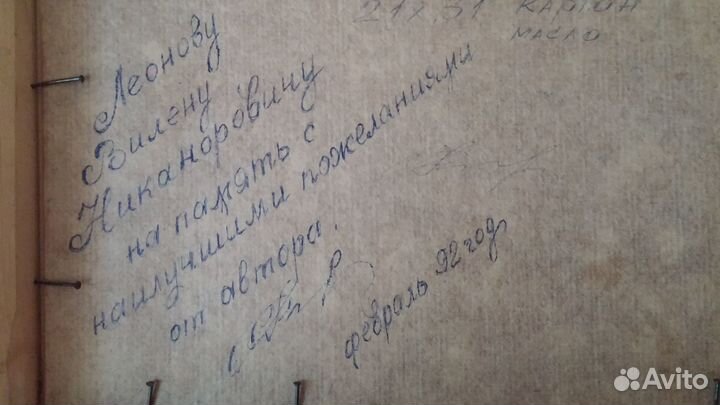 21х31 картон
масло
Леонову
Вилену
Никаноровичу
на память с
наилучшими пожеланиями
от автора.
февраль 92 год
Avito